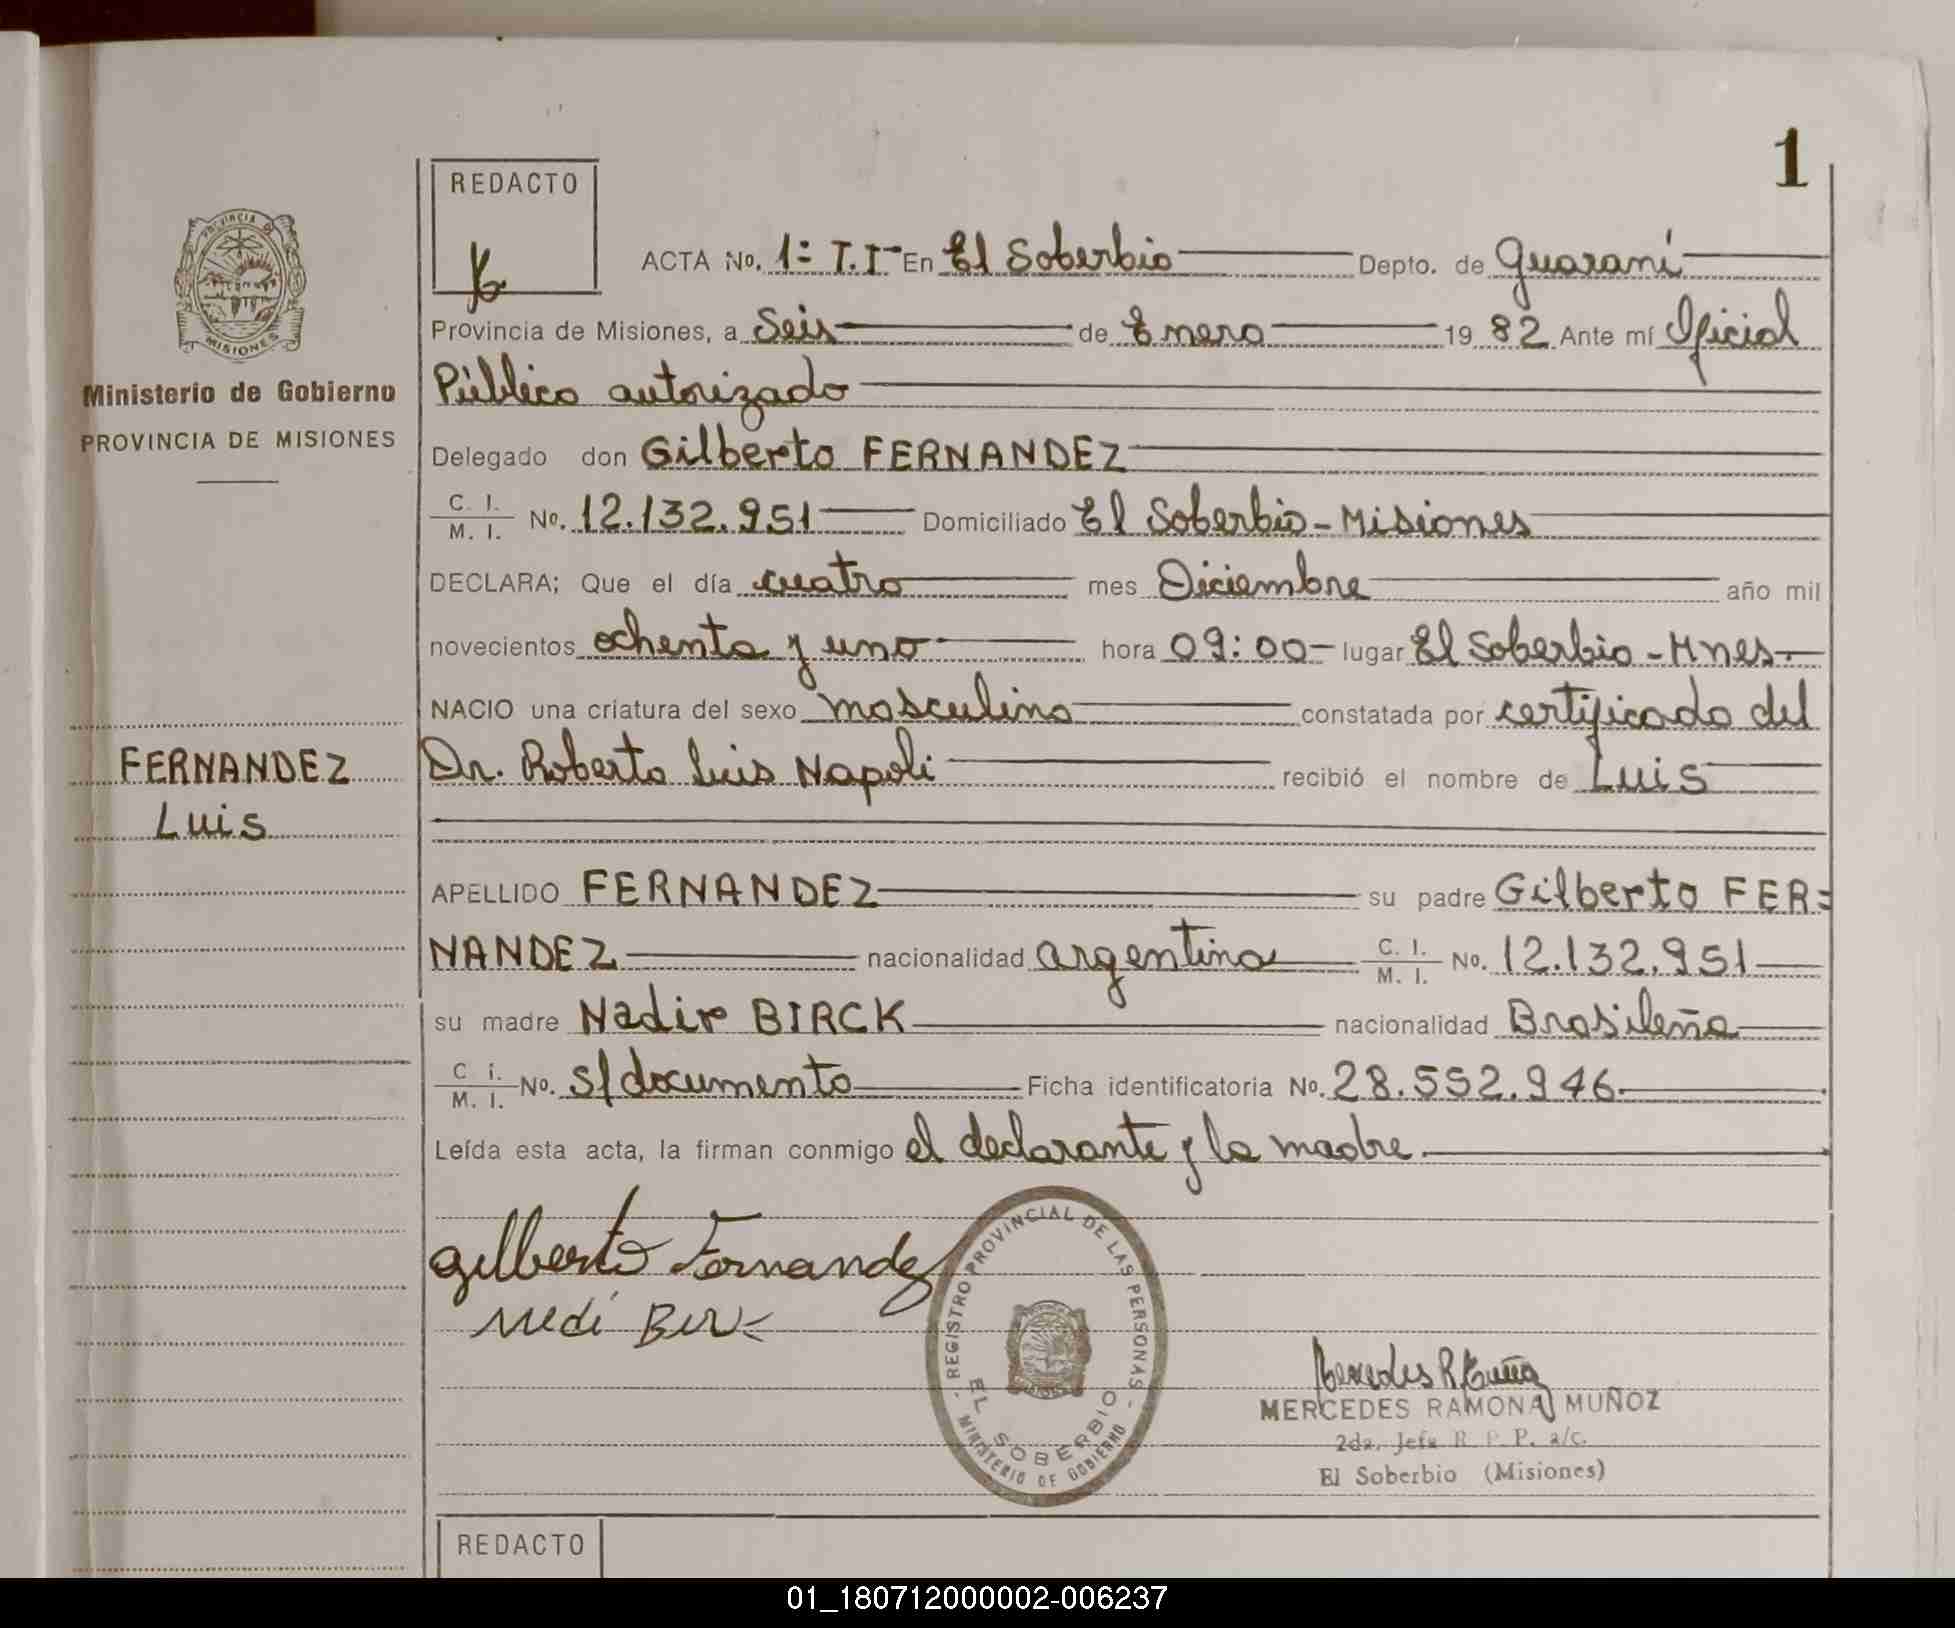 1
REDACTO
ACTA No. 1= T.I- En El Soberbio Depto. de Guaraní
Provincia de Misiones, a Seis de Enero 19 82 Ante mí Oficial
Público autorizado
Delegado don Gilberto FERNANDEZ
C. I. M. I. No. 12.132.951 Domiciliado El Soberbio - Misiones
DECLARA; Que el día cuatro mes Diciembre año mil
novecientos ochenta y uno hora 09:00 - lugar El Soberbio - Mnes.
NACIO una criatura del sexo masculino constatada por certificado del
Dr. Roberto Luis Napoli recibió el nombre de Luis
APELLIDO FERNANDEZ su padre Gilberto FER=
NANDEZ nacionalidad argentina C. I. M. I. No. 12.132.951
su madre Nadir BIRCK nacionalidad Brasileña
C i. M. I. No. s/documento Ficha identificatoria No. 28.552.946
Leída esta acta, la firman conmigo el declarante y la madre.
PROVINCIA DE
MISIONES
Ministerio de Gobierno
PROVINCIA DE MISIONES
FERNANDEZ
Luis
Gilberto Fernandez
REGISTRO PROVINCIAL DE LAS PERSONAS
- MINISTERIO DE GOBIERNO -
EL SOBERBIO
Mercedes R Muñoz
MERCEDES RAMONA MUÑOZ
2da. Jefa R. P. P. a/c.
El Soberbio (Misiones)
REDACTO
01_180712000002-006237